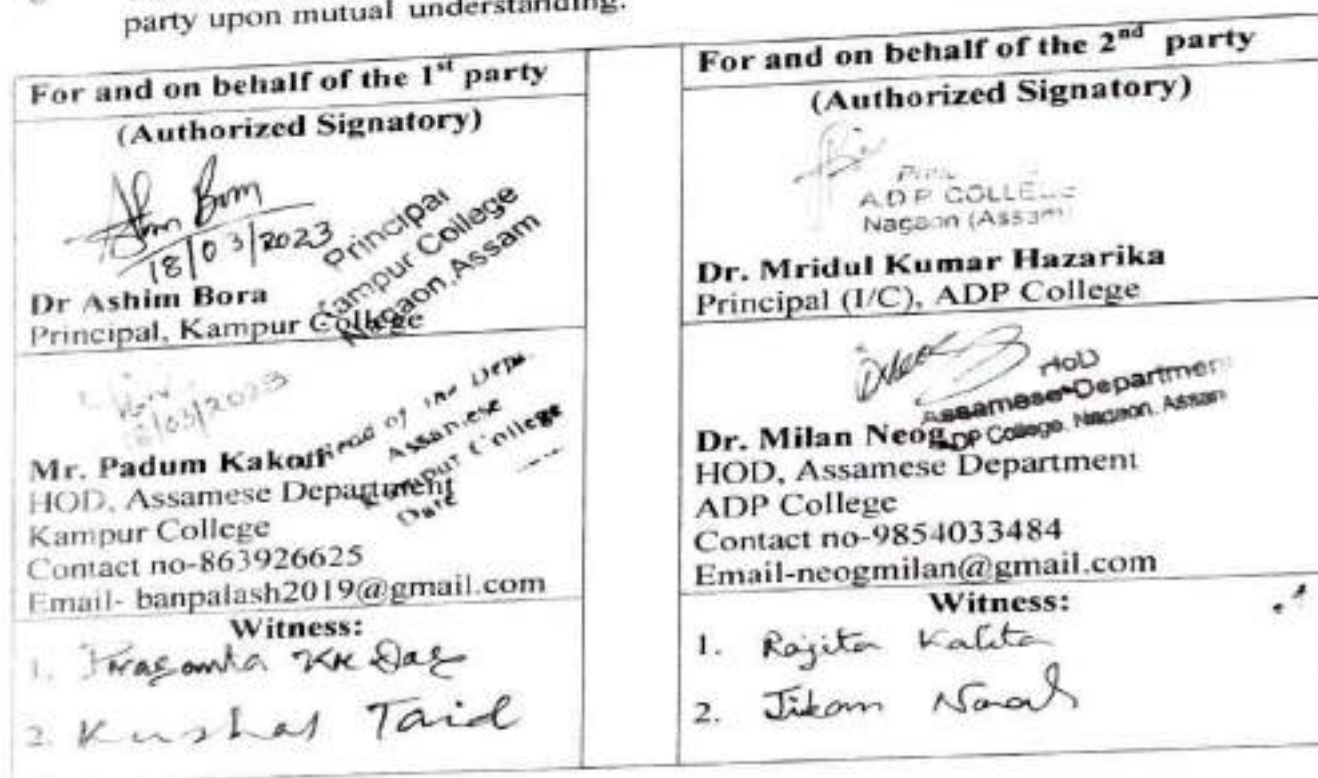 party upon mutual understanding.
For and on behalf of the 1st party
(Authorized Signatory)
Bora
18/03/2023
Principal
Kampur College
Nagaon, Assam
Dr Ashim Bora
Principal, Kampur College
/03/2023
Head of the Deptt.
Assamese
Kampur College
Date
Mr. Padum Kakoti
HOD, Assamese Department
Kampur College
Contact no-863926625
Email- banpalash2019@gmail.com
Witness:
1. Kr Das
2. Kushal Taid
For and on behalf of the 2nd party
(Authorized Signatory)
A.D.P. COLLEGE
Nagaon (Assam)
Dr. Mridul Kumar Hazarika
Principal (I/C), ADP College
HoD
Assamese Department
ADP College, Nagaon, Assam
Dr. Milan Neog
HOD, Assamese Department
ADP College
Contact no-9854033484
Email-neogmilan@gmail.com
Witness:
1. Rajita Kalita
2.